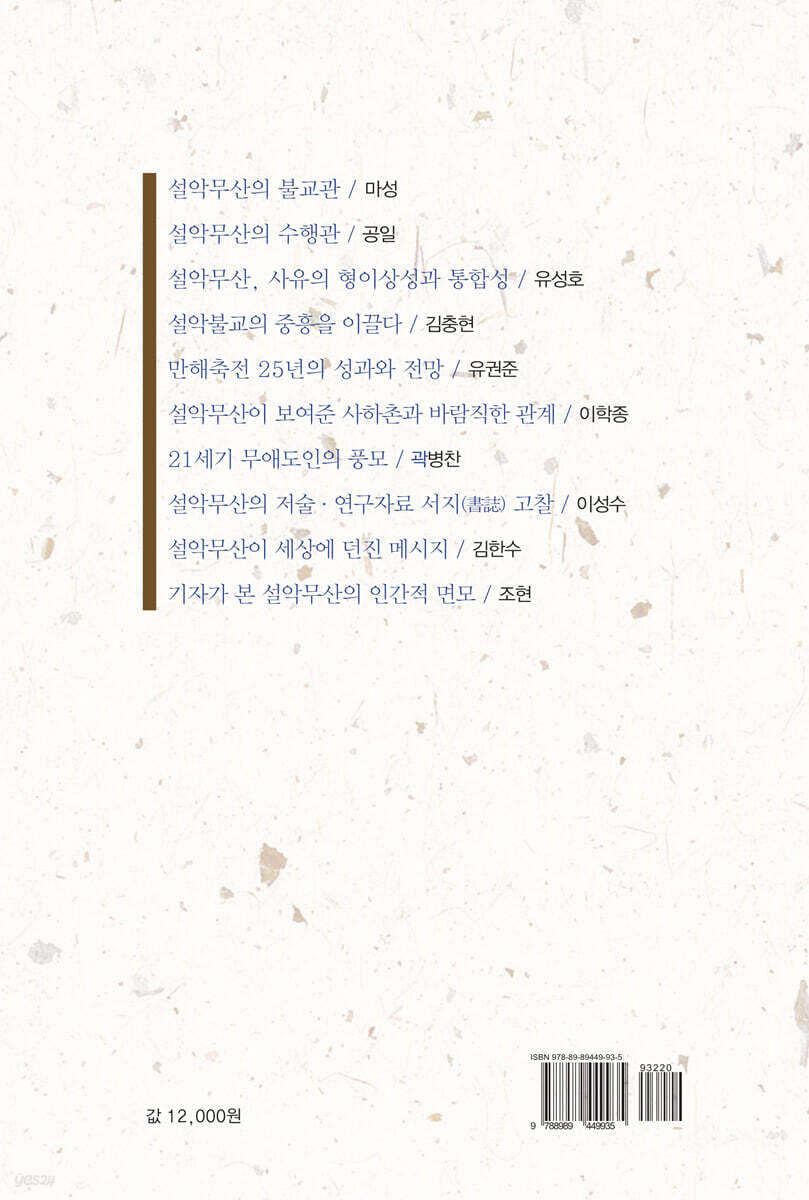 설악무산의 불교관 / 마성
설악무산의 수행관 / 공일
설악무산, 사유의 형이상성과 통합성 / 유성호
설악불교의 중흥을 이끌다 / 김충현
만해축전 25년의 성과와 전망 / 유권준
설악무산이 보여준 사하촌과 바람직한 관계 / 이학종
21세기 무애도인의 풍모 / 곽병찬
설악무산의 저술 · 연구자료 서지(書誌) 고찰 / 이성수
설악무산이 세상에 던진 메시지 / 김한수
기자가 본 설악무산의 인간적 면모 / 조현
ISBN 978-89-89449-93-5
93220
9 788989 449935
값 12,000원
yes24